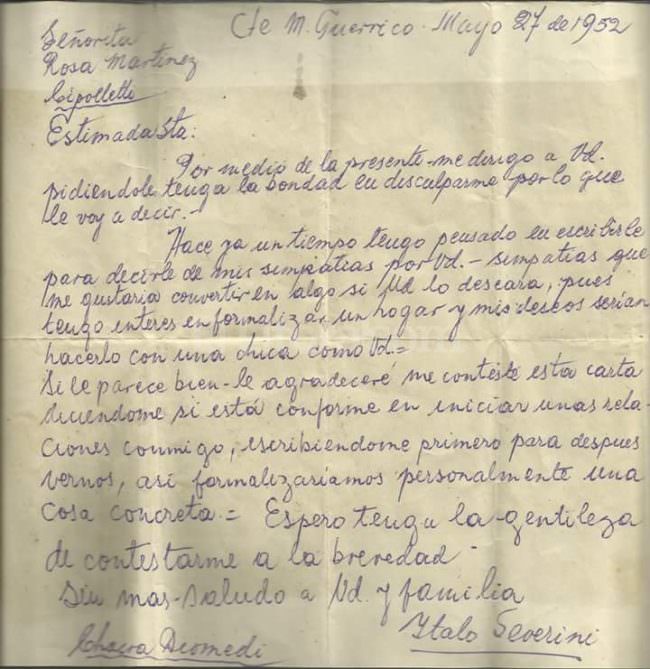 Cte M. Guerrico. Mayo 27 de 1952
Señorita
Rosa Martinez
Cipolletti
Estimada Sta:
Por medio de la presente me dirigo a Vd.
pidiendole tenga la bondad en disculparme por lo que
le voy a decir.-
Hace ya un tiempo tengo pensado en escribirle
para decirle de mis simpatias por Vd.- simpatias que
me gustaria convertir en algo si Vd lo deseara, pues
tengo interes en formalizar un hogar y mis deseos serian
hacerlo con una chica como Vd.=
Si le parece bien-le agradeceré me conteste esta carta
diciendome si está conforme en iniciar unas rela-
ciones conmigo, escribiendome primero para despues
vernos, asi formalizariamos personalmente una
cosa concreta.= Espero tenga la gentileza
de contestarme a la brevedad-
Sin mas-saludo a Vd. y familia
Italo Severini
Chacra Diomedi